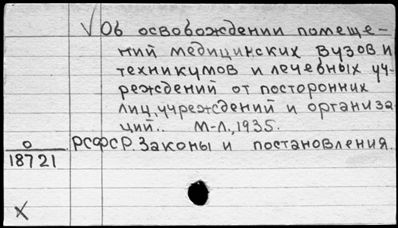 √ Об освобождении помеще-
ний медицинских вузов и
техникумов и лечебных уч-
реждений от посторонних
лиц, учреждений и организа-
ций.. М-Л., 1935.
О
18721
РСФСР. Законы и постановления.
X